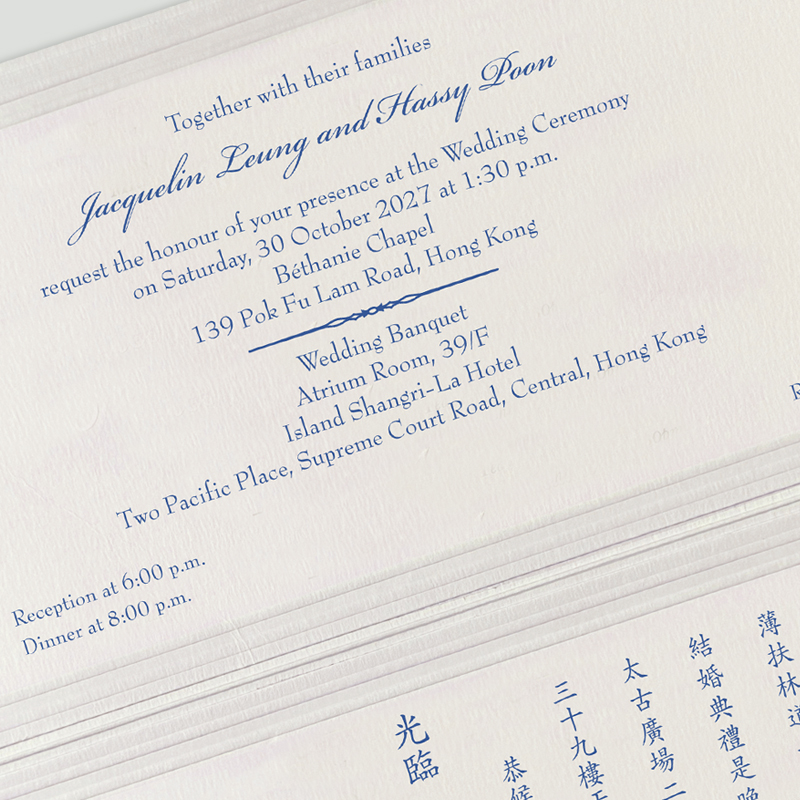 Together with their families
Jacquelin Leung and Hassy Poon
request the honour of your presence at the Wedding Ceremony
on Saturday, 30 October 2027 at 1:30 p.m.
Béthanie Chapel
139 Pok Fu Lam Road, Hong Kong
Wedding Banquet
Atrium Room, 39/F
Island Shangri-La Hotel
Two Pacific Place, Supreme Court Road, Central, Hong Kong
Reception at 6:00 p.m.
Dinner at 8:00 p.m.
薄扶林道
結婚典禮是晚
太古廣場二
三十九樓
恭候
光臨